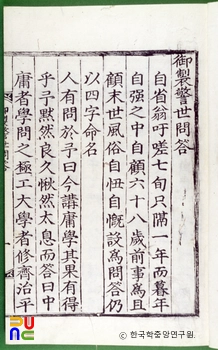 御製警世問答
自省翁吁嗟七旬只隔一年而暮年
自强之中自顧六十八歲前事爲且
顧末世風俗自忸自慨設爲問答仍
以四字命名
人有問於予曰今講庸學其果有得
乎予黙然良久愀然太息而答曰中
庸者學問之極工大學者修齊治平
© 한국학중앙연구원